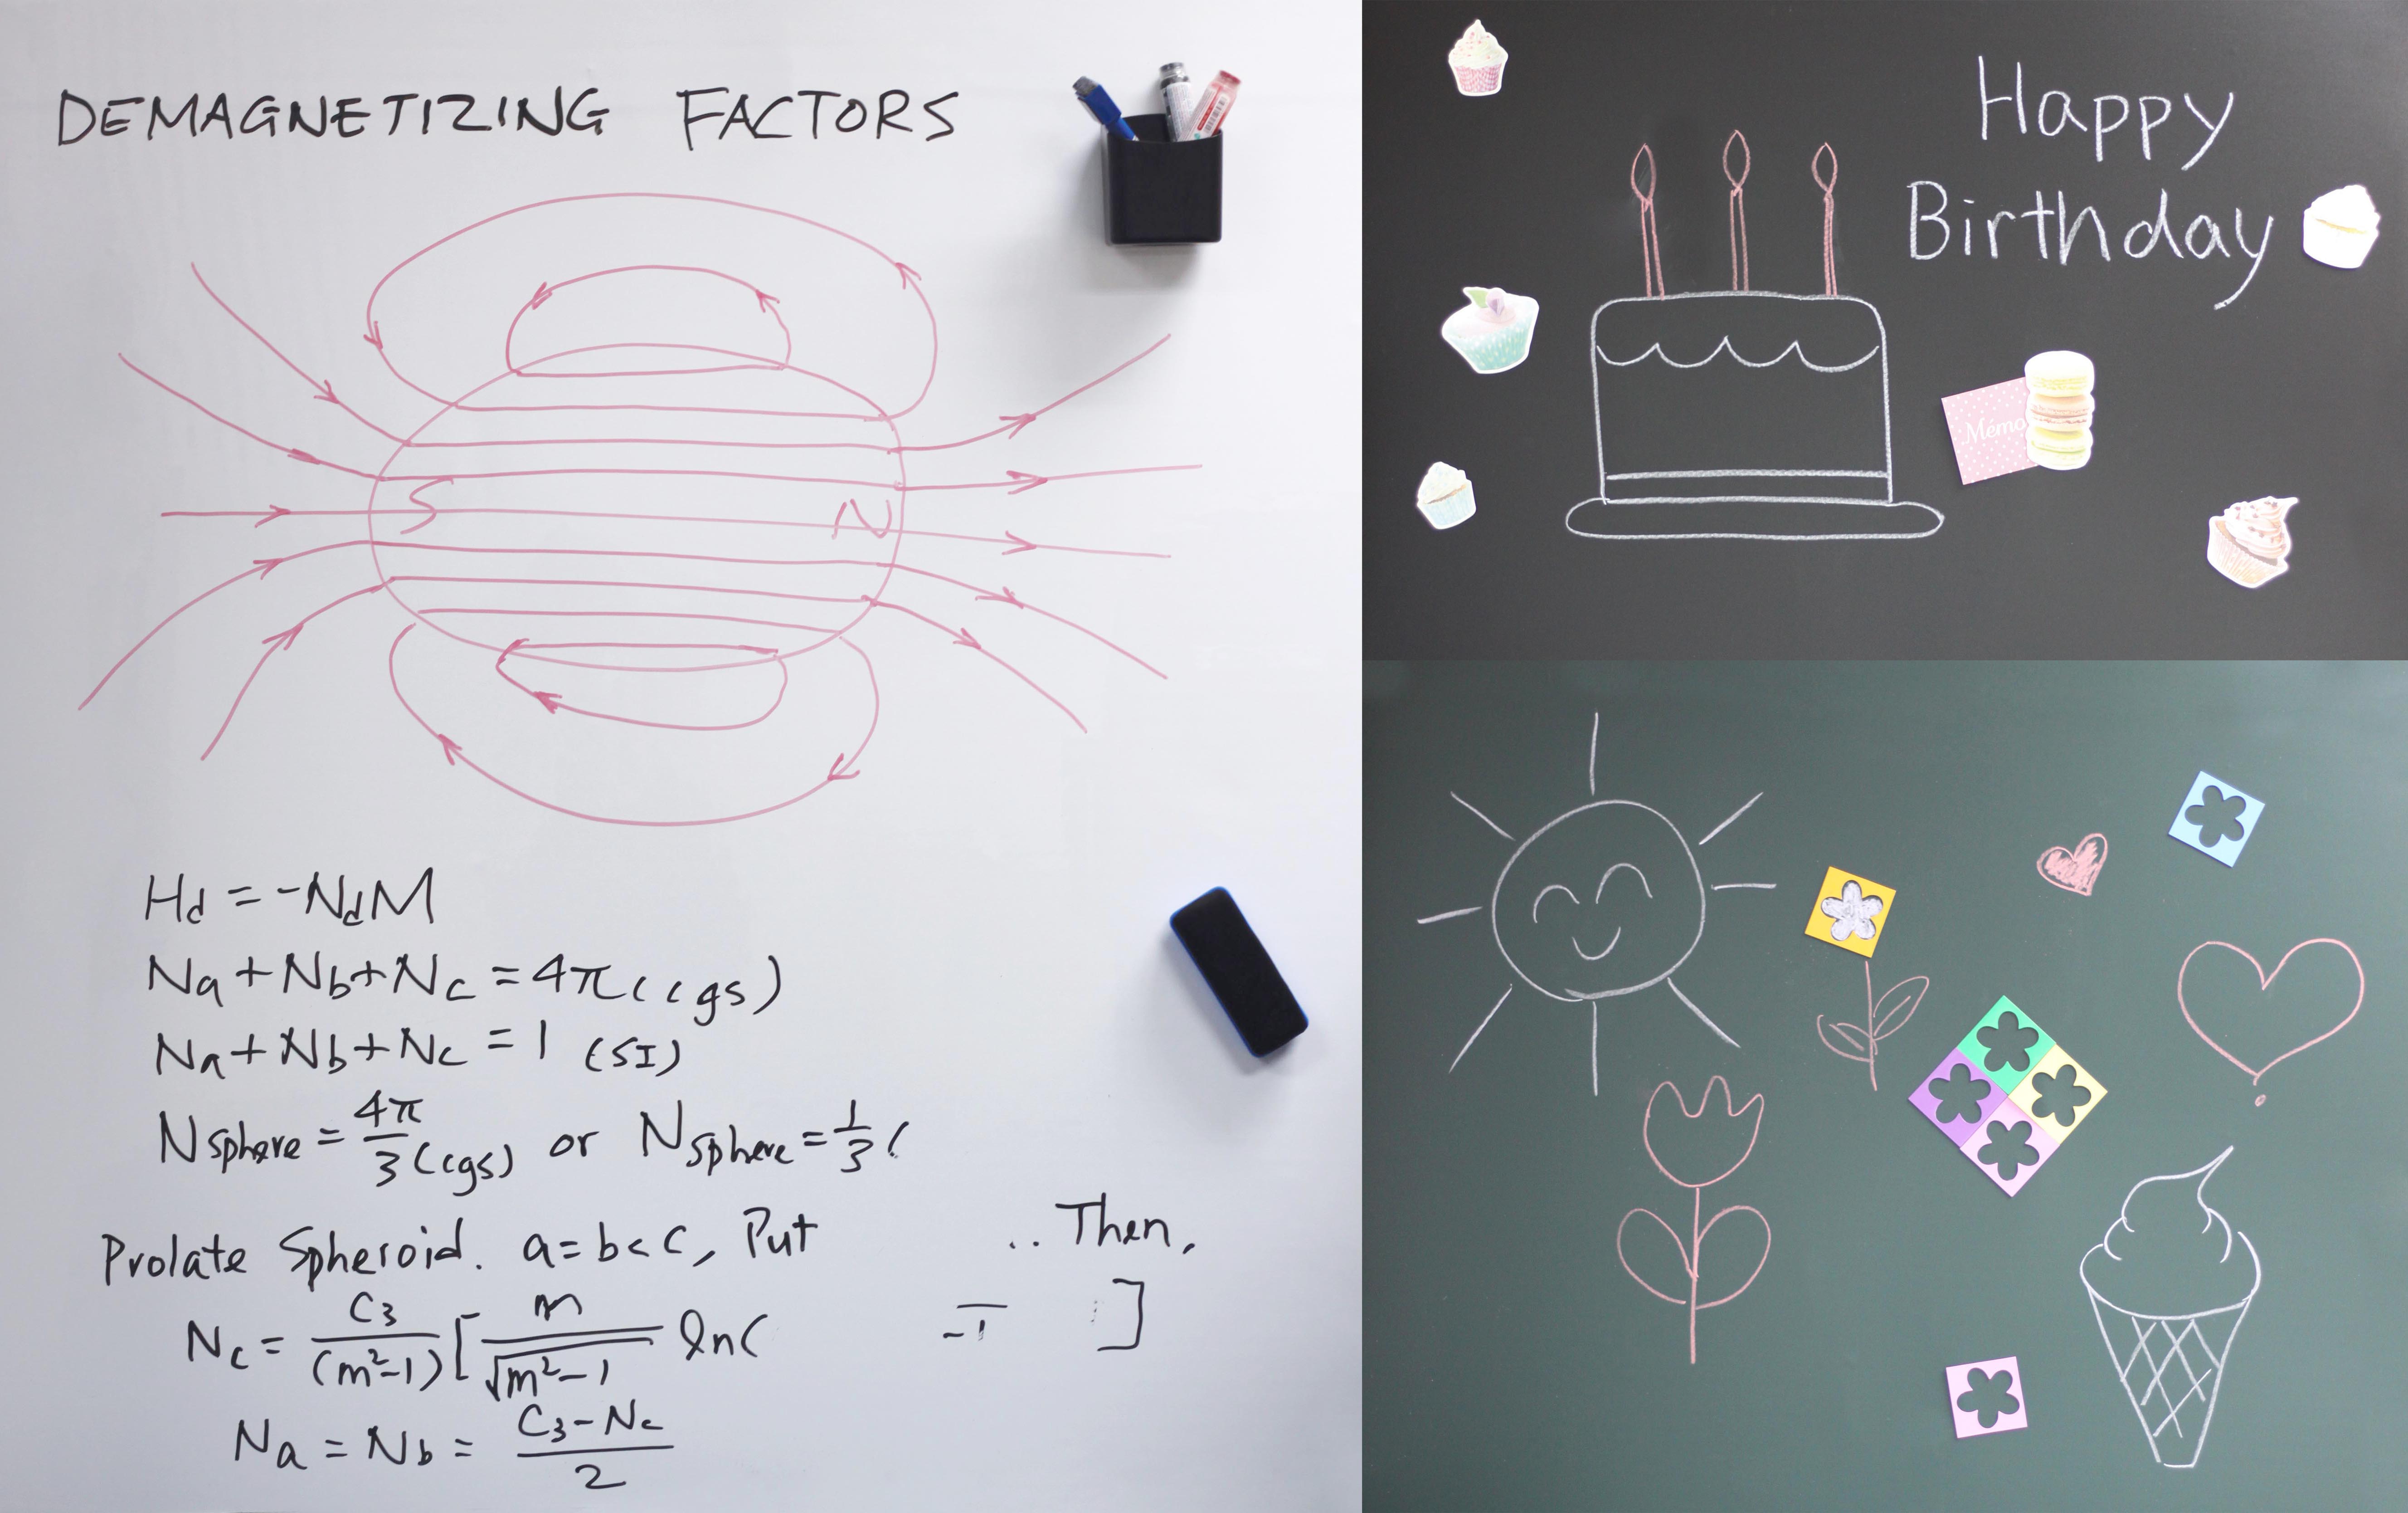 DEMAGNETIZING FACTORS
S
N
Hd = -NdM
Na+Nb+Nc = 4π (cgs)
Na+Nb+Nc = 1 (SI)
Nsphere = 4π/3 (cgs) or Nsphere = 1/3 (
Prolate Spheroid. a=b<c, Put .. Then,
Nc = C3/(m²-1) [ m/√m²-1 ln( -1 ]
Na = Nb = C3-Nc/2
Happy
Birthday
Mémo